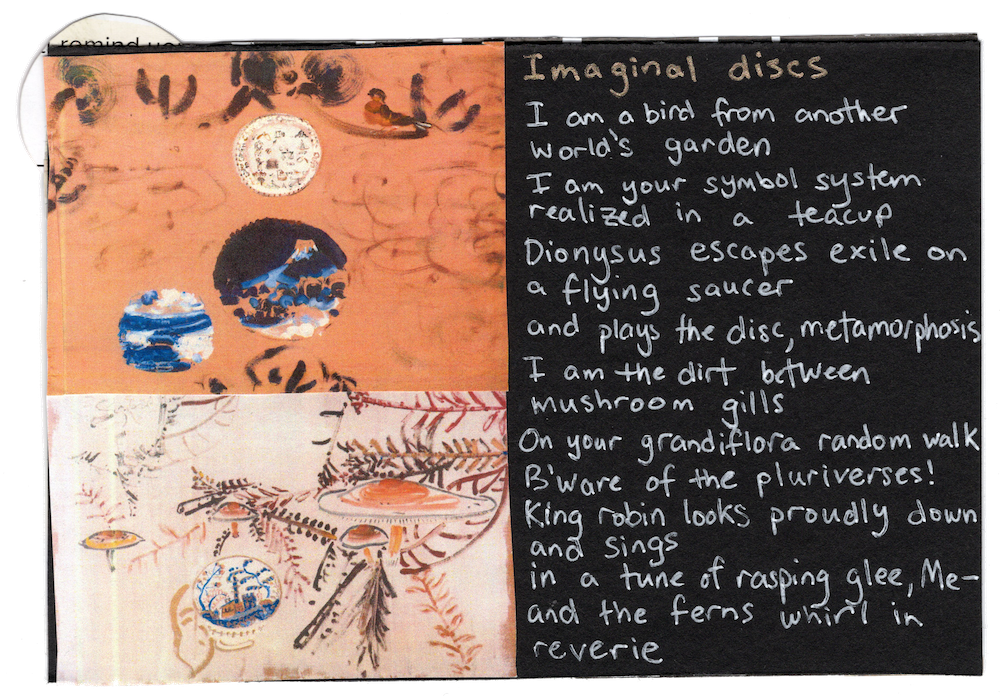 remind you
Imaginal discs
I am a bird from another
world's garden
I am your symbol system
realized in a teacup
Dionysus escapes exile on
a flying saucer
and plays the disc, metamorphosis
I am the dirt between
mushroom gills
On your grandiflora random walk
B'ware of the pluriverses!
King robin looks proudly down
and sings
in a tune of rasping glee, Me-
and the ferns whirl in
reverie